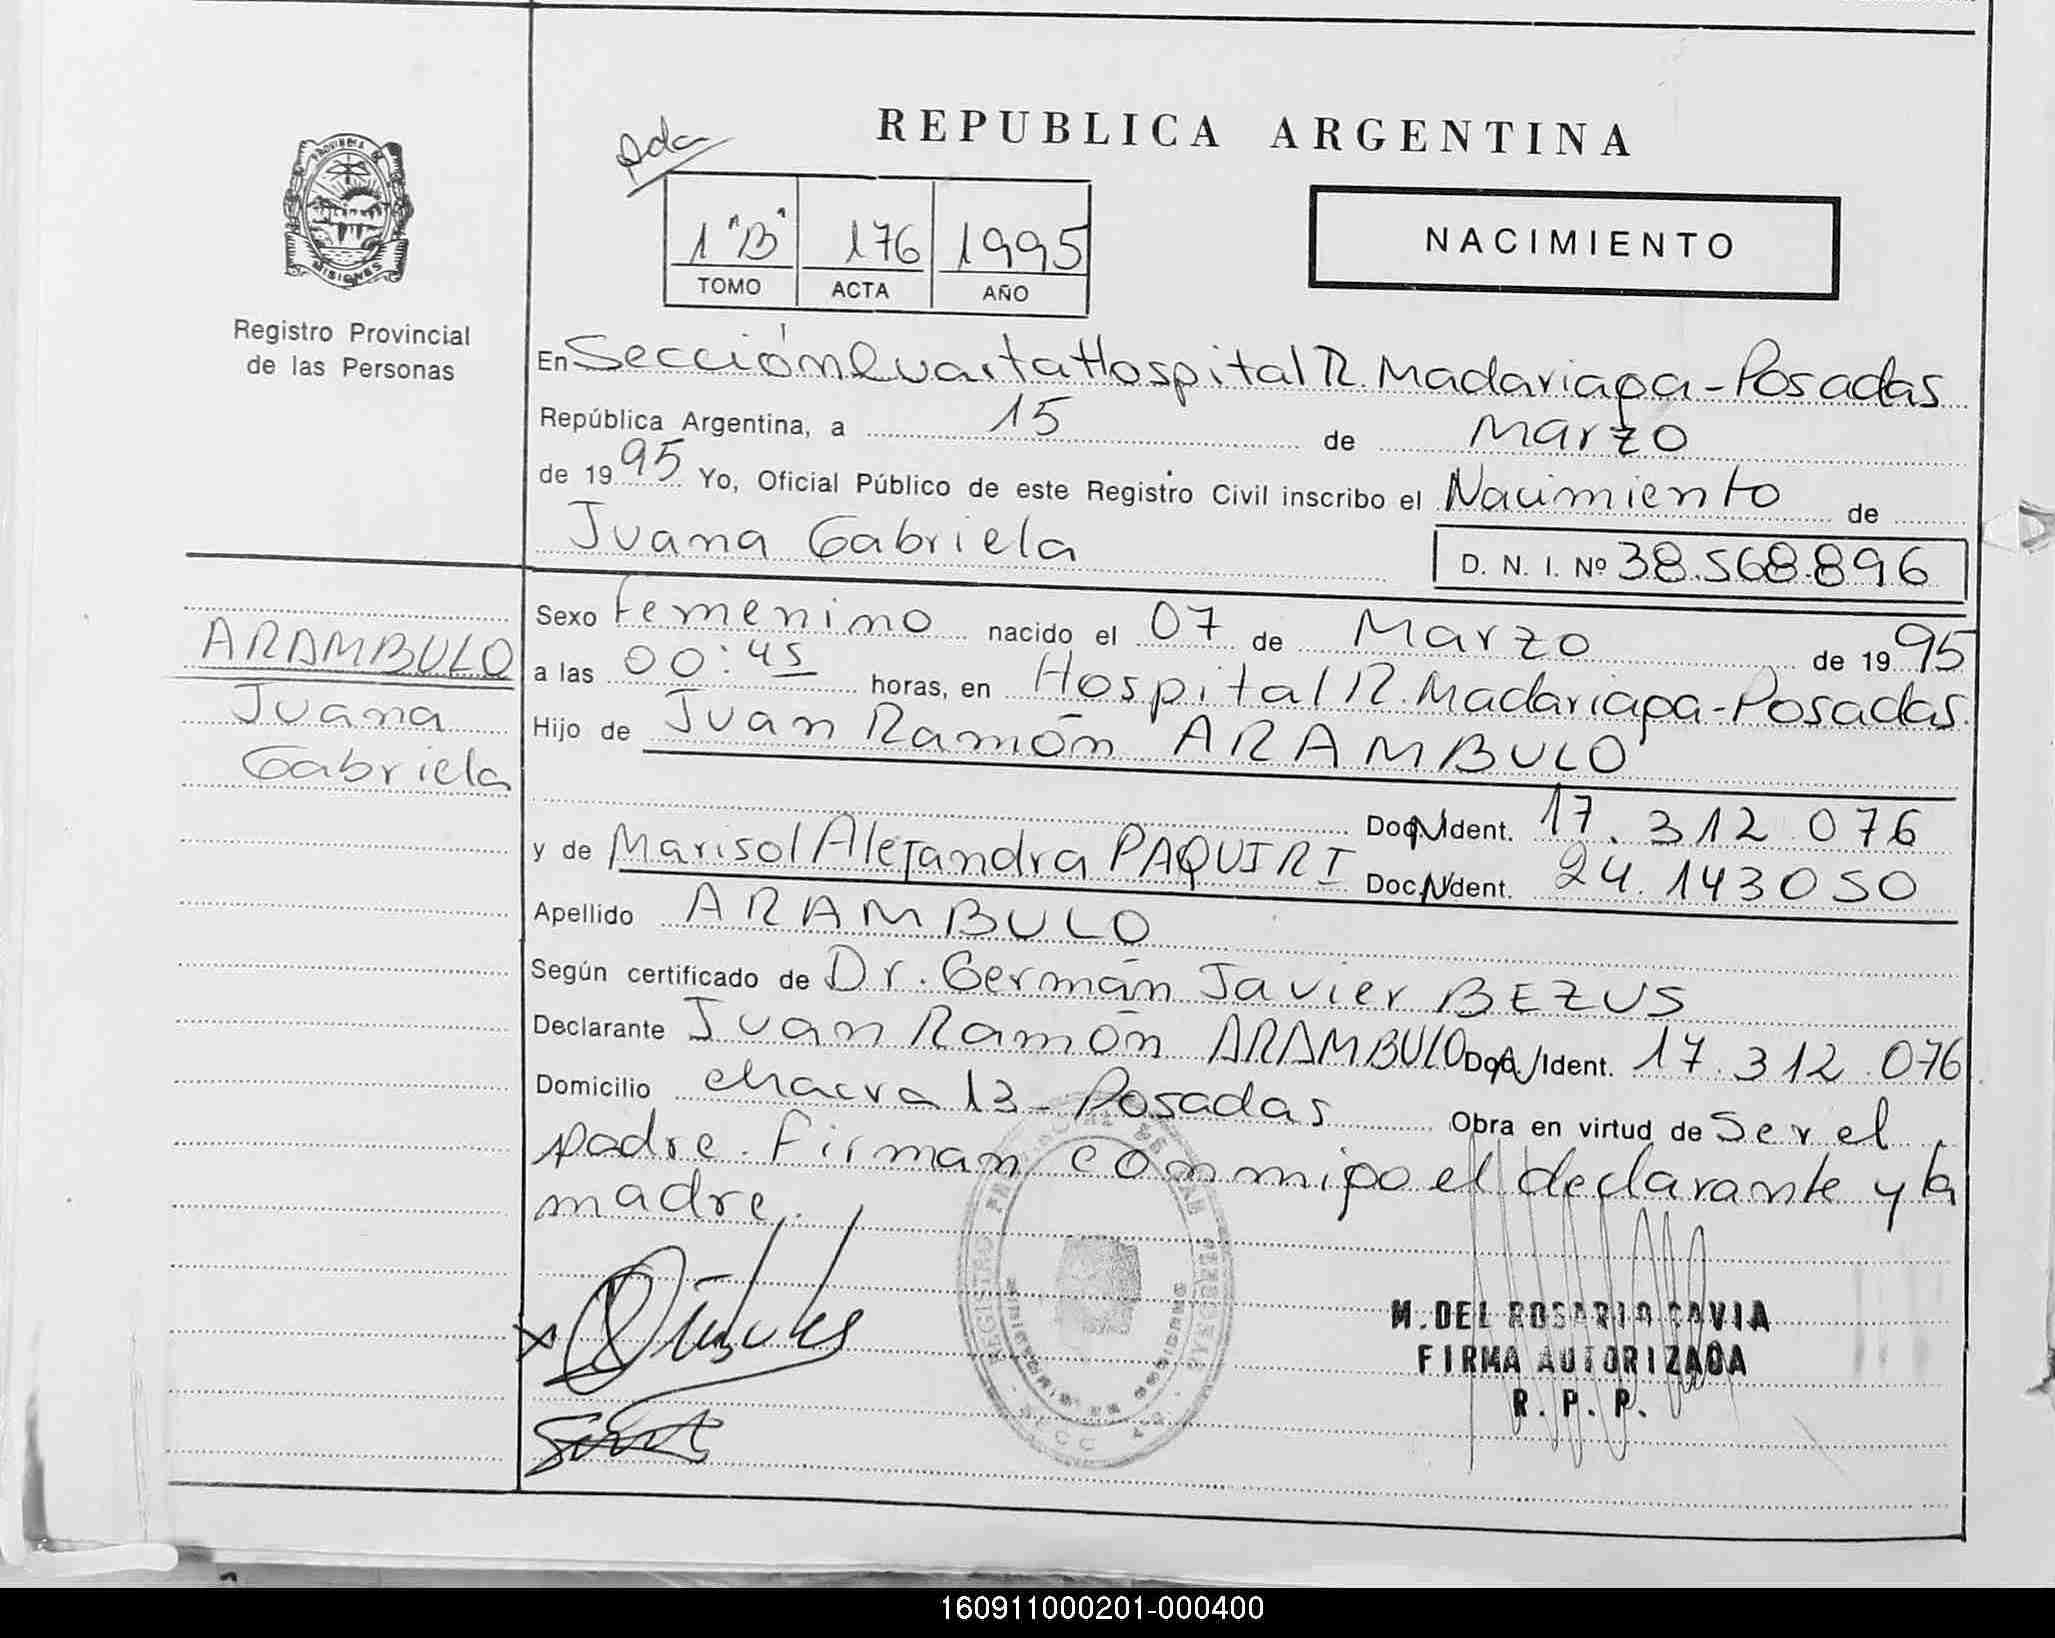 REPUBLICA ARGENTINA
Pda
1 "B" 176 1995
TOMO ACTA AÑO
NACIMIENTO
PROVINCIA DE
MISIONES
Registro Provincial
de las Personas
En Sección Cuarta Hospital R. Madariaga - Posadas
República Argentina, a 15 de Marzo
de 1995 Yo, Oficial Público de este Registro Civil inscribo el Nacimiento de
Juana Gabriela
D. N. I. Nº 38.568.896
ARAMBULO
Juana
Gabriela
Sexo Femenino nacido el 07 de Marzo de 1995
a las 00:45 horas, en Hospital R. Madariaga - Posadas.
Hijo de Juan Ramón ARAMBULO
Doc. Ident. 17.312.076
y de Marisol Alejandra PAQUIRI Doc. Ident. 24.143050
Apellido ARAMBULO
Según certificado de Dr. Germán Javier BEZUS
Declarante Juan Ramón ARAMBULO Doc. Ident. 17.312.076
Domicilio chacra 13 - Posadas Obra en virtud de Ser el
padre. Firman conmigo el declarante y la
madre.
REGISTRO PROVINCIAL DE LAS PERSONAS
M. DEL ROSARIO CAVIA
FIRMA AUTORIZADA
R. P. P.
160911000201-000400